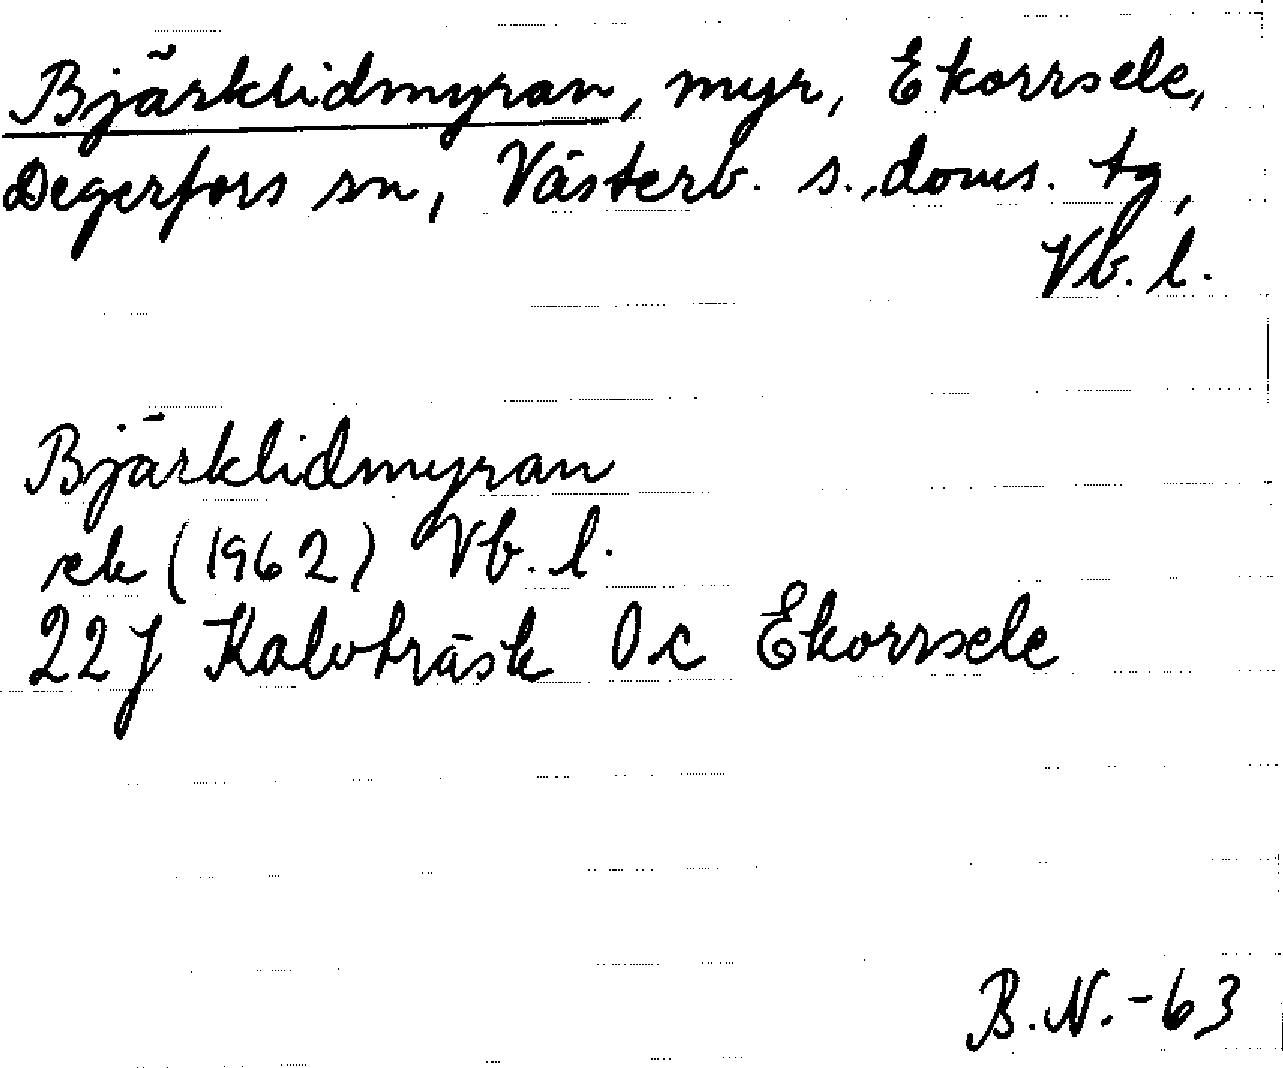 Bjärklidmyran, myr, Ekorrsele,
Degerfors sn, Västerb. s. doms. tg,
Vb. l.
Bjärklidmyran
ek (1962) Vb. l.
22J Kalvträsk 0 c Ekorrsele
B.N.-63